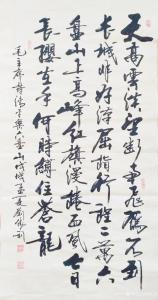 天高雲淡望斷南飛雁不到
長城非好漢屈指行程二萬六
盤山上高峰紅旗漫捲西風今日
長纓在手何時縛住蒼龍
毛主席詩清平樂六盤山戊戌孟夏劉